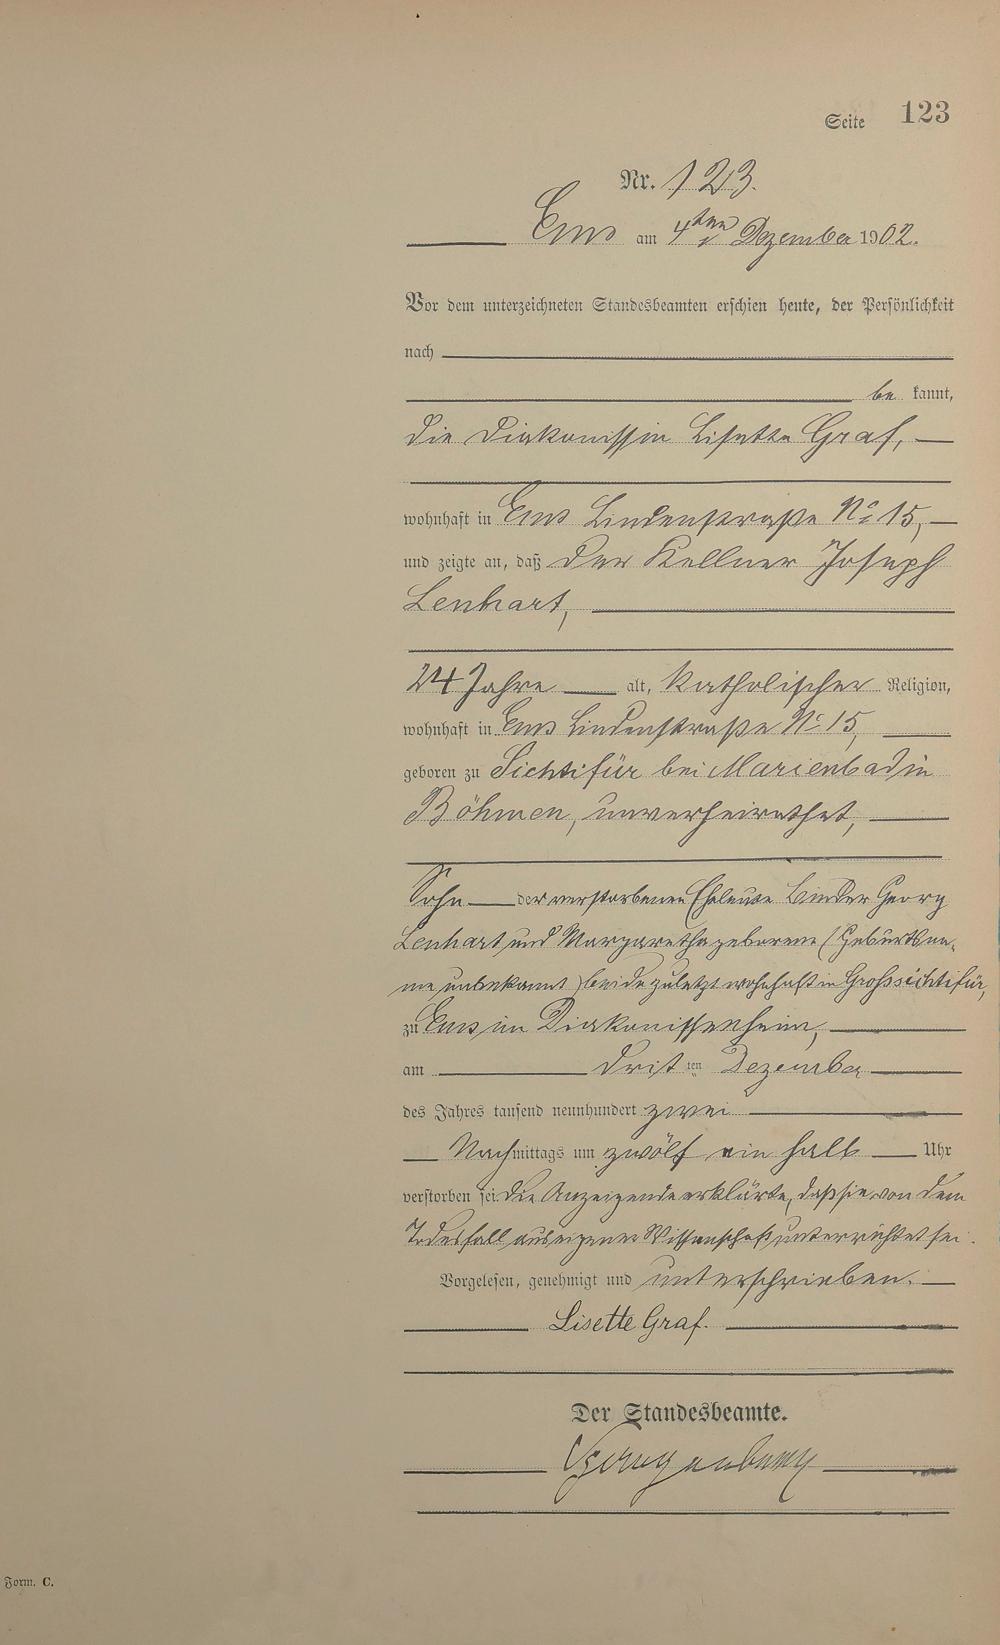 Seite 123
Nr. 123.
Ems am 4ten Dezember 1902.
Vor dem unterzeichneten Standesbeamten erschien heute, der Persönlichkeit
nach
be kannt,
die Diakonissin Lisette Graf,
wohnhaft in Ems Lindenstraße No 15,
und zeigte an, daß der Kellner Joseph
Lenhart,
24 Jahre alt, katholischer Religion,
wohnhaft in Ems Lindenstraße No 15,
geboren zu Sichtifür bei Marienbad in
Böhmen, unverheirathet,
Sohn der verstorbenen Eheleute Georg
Lenhart und Margaretha geborene (Geburtsna-
me unbekannt) beide zuletzt wohnhaft in Grosssichtifür,
zu Ems im Diakonissenheim,
am dritten Dezember
des Jahres tausend neunhundert zwei
Nachmittags um zwölf ein halb Uhr
verstorben sei. Die Anzeigende erklärte, daß sie von dem
Todesfall aus eigener Wissenschaft unterrichtet sei.
Vorgelesen, genehmigt und unterschrieben.
Lisette Graf.
Der Standesbeamte.
Form. C.